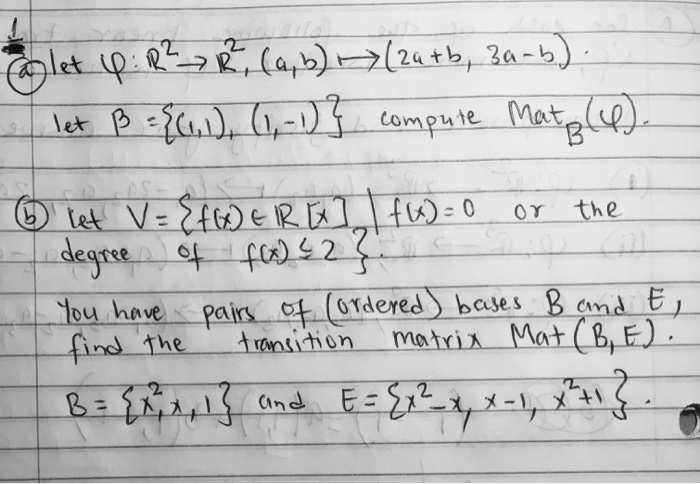 1
(a) let φ: ℝ² → ℝ², (a,b) ↦ (2a+b, 3a-b).
let B = {(1,1), (1,-1)} compute Mat_B(φ).
(b) let V = {f(x) ∈ ℝ[x] | f(x) = 0 or the
degree of f(x) ≤ 2}.
You have pairs of (ordered) bases B and E,
find the transition matrix Mat(B, E).
B = {x², x, 1} and E = {x²-x, x-1, x²+1}.